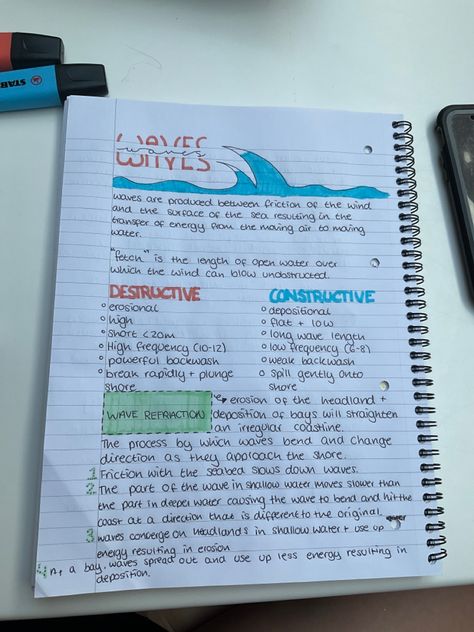 STABI
WAVES
waves
waves are produced between friction of the wind
and the surface of the sea resulting in the
transfer of energy from the moving air to moving
water.
"fetch" is the length of open water over
which the wind can blow unobstructed.
DESTRUCTIVE
° erosional
° high
° short <20m
° High frequency (10-12)
° powerful backwash
° break rapidly + plunge
shore
CONSTRUCTIVE
° depositional
° flat + low
° long wave length
° low frequency (6-8)
° weak backwash
° spill gently onto
shore
WAVE REFRACTION
erosion of the headland +
deposition of bays will straighten
an irregular coastline.
The process by which waves bend and change
direction as they approach the shore.
1 Friction with the seabed slows down waves.
2 The part of the wave in shallow water moves slower than
the part in deeper water causing the wave to bend and hit the
coast at a direction that is different to the original.
3 waves converge on headlands in shallow water + use up
energy resulting in erosion
4 In a bay, waves spread out and use up less energy resulting in
deposition.